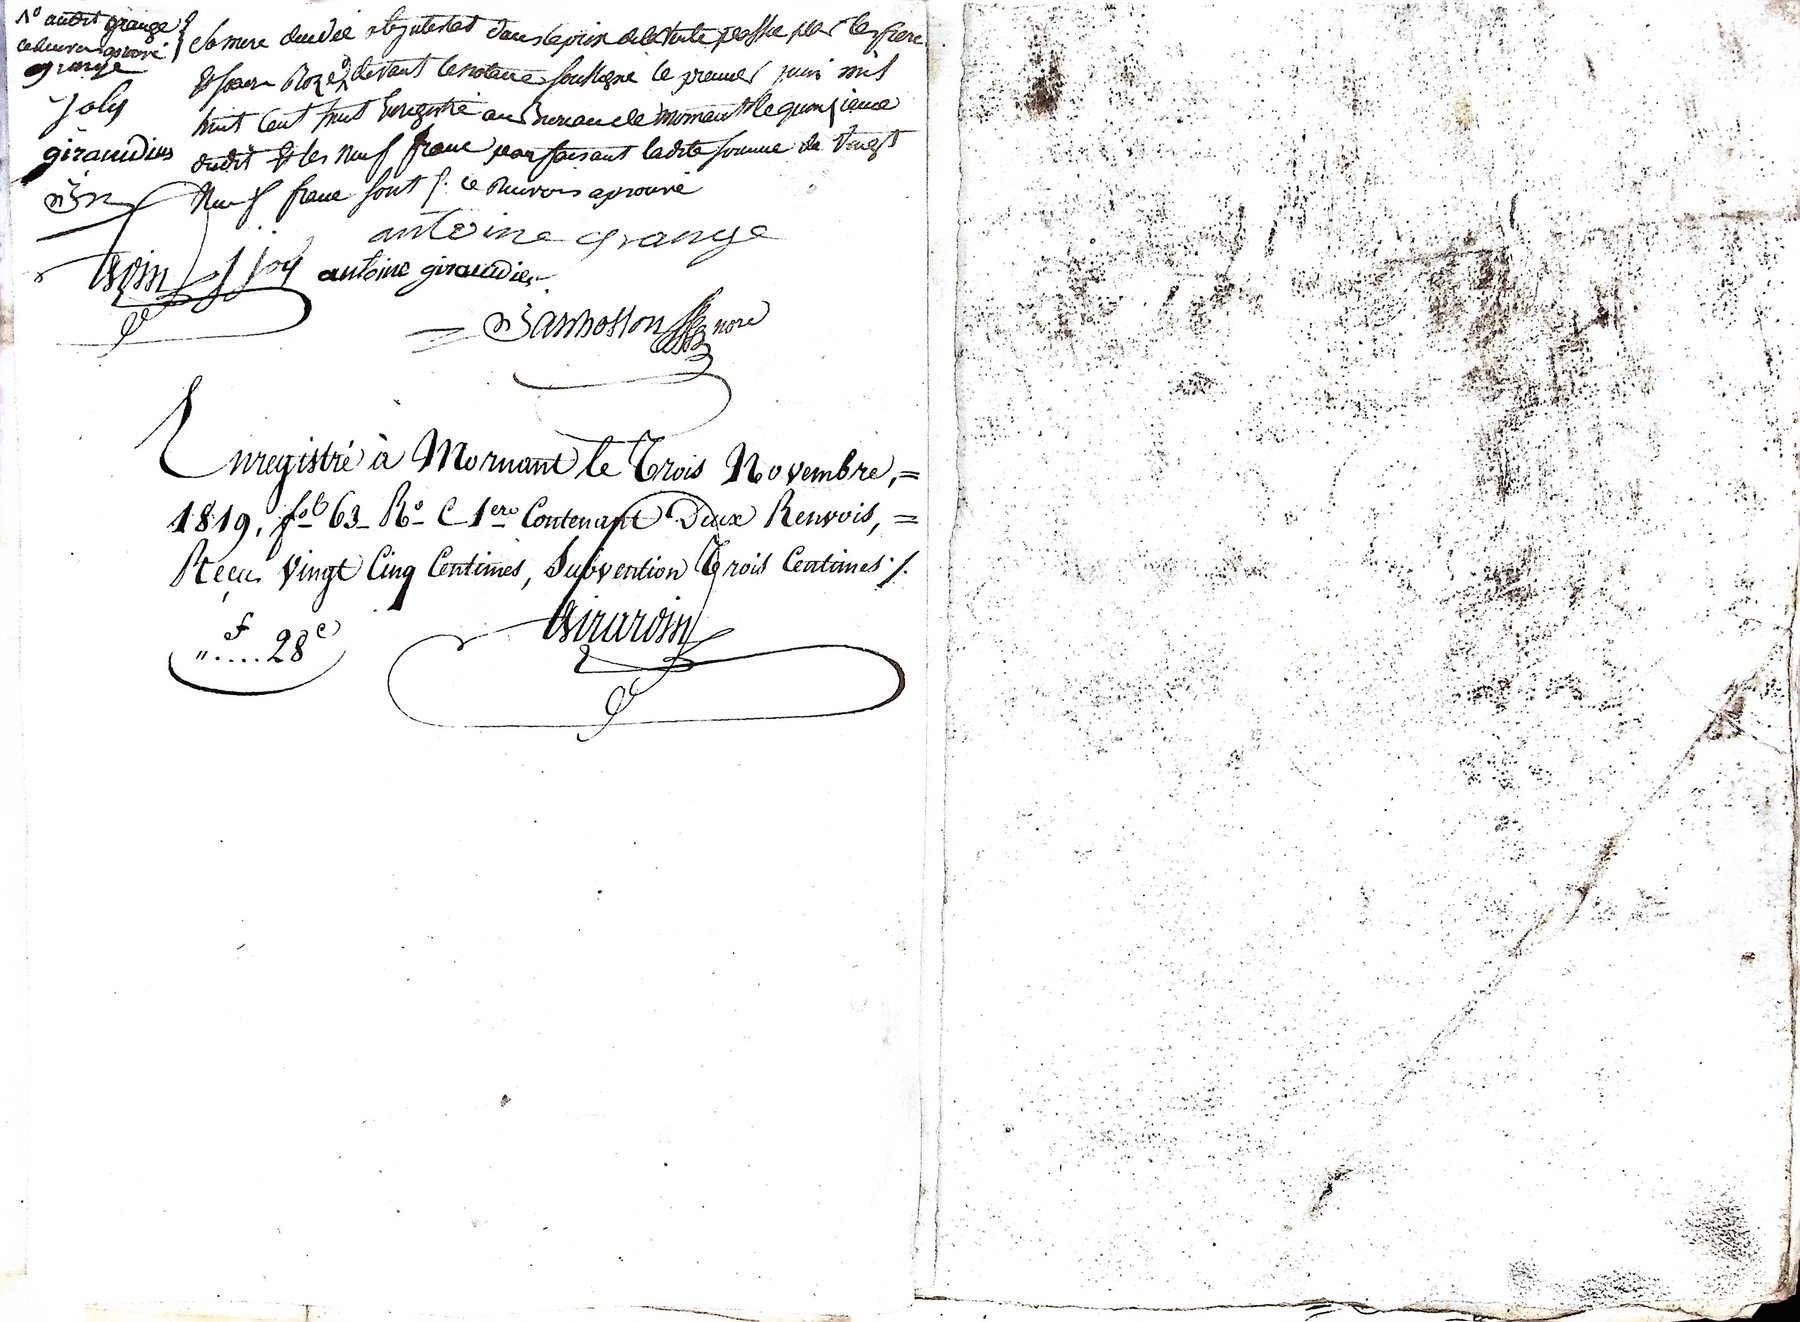 1º audit grange
ce renvoi aprouvé
grange
Joly
giraudier
Bn
et mere du dit et dans le prix de la Vente passée par les frere
et sœur Rozé devant le notaire soussigné le premier juin mil
huit Cent huit Enregistré au Bureau de Mornant le quinzieme
dudit et les Neuf franc pour faisant ladite somme de Vingt
Neuf franc sont /. ce Renvois aprouvé
antoine grange
J Joly antoine giraudier
Barmosson nore
Enregistré à Mornant le Trois Novembre, =
1819, fol 63 Ro C 1ere Contenant Deux Renvois, =
Reçu Vingt Cinq Centimes, Subvention Trois Centimes /.
f
".... 28 c
Girardin